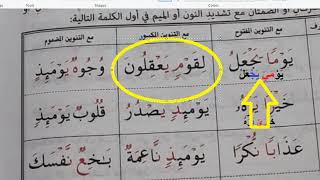 أو الضمتان مع تشديد النون أو الميم في أول الكلمة التالية:
مع التنوين المفتوح مع التنوين المكسور مع التنوين المضموم
يَوْمًا يَجْعَلُ لِقَوْمٍ يَعْقِلُونَ وُجُوهٌ يَوْمَئِذٍ
يَوْمَيْ يَجْعَلُ
خَيْرًا يَوْمَئِذٍ يَصْدُرُ قُلُوبٌ يَوْمَئِذٍ
عَذَابًا نُكْرًا يَوْمَئِذٍ نَاعِمَةٌ بَاخِعٌ نَفْسَكَ